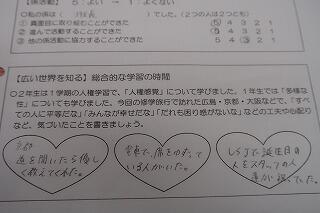 【係活動】 5：よい → 1：よくない
○私の係は（　　　）でした。（2つの人は2つとも）
① 真面目に取り組むことができた 5 4 3 2 1
② 進んで活動することができた 5 4 3 2 1
③ 他の係活動に協力することができた 5 4 3 2 1
【広い世界を知る】総合的な学習の時間
○2年生は1学期の人権学習で、「人権感覚」について学びました。1年生では「多様な
性」についても学びました。今回の修学旅行で訪れた広島・京都・大阪などで、「すべ
ての人に平等だな」「みんなが幸せだな」「だれも困り感がないな」などの工夫や心配り
など、気づいたことを書きましょう。
道を聞いたら優しく
教えてくれた。
電車で、席をゆずって
いる人がいた。
USJで、誕生日の
人をスタッフの人
達が祝ってた。